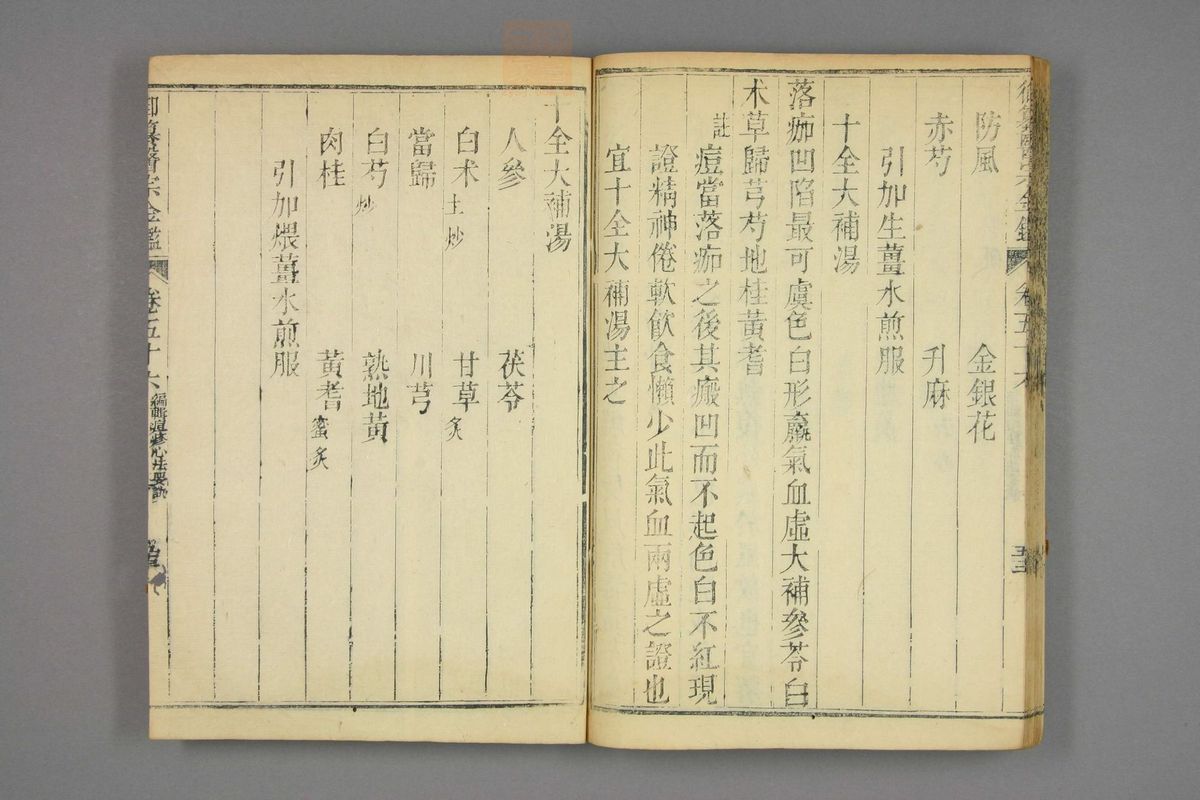 防風　金銀花
赤芍　升麻
引加生薑水煎服
十全大補湯
落痂凹陷最可虞色白形羸氣血虛大補參苓白
朮草歸芎芍地桂黃耆
註痘當落痂之後其瘢凹而不起色白不紅現
證精神倦軟飲食懶少此氣血兩虛之證也
宜十全大補湯主之
十全大補湯
人參　茯苓
白朮土炒　甘草炙
當歸　川芎
白芍炒　熟地黃
肉桂　黃耆蜜炙
引加煨薑水煎服
御纂醫宗金鑑　卷五十六　編輯痘疹心法要訣